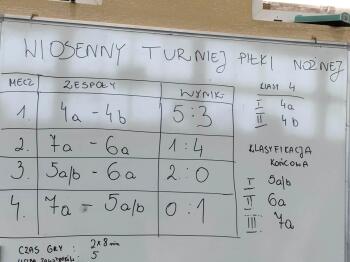 WIOSENNY TURNIEJ PIŁKI NOŻNEJ
MECZ ZESPOŁY WYNIK
1. 4a - 4b 5:3
2. 7a - 6a 1:4
3. 5a/b - 6a 2:0
4. 7a - 5a/b 0:1
CZAS GRY : 2x8 min
5
KLASY 4
I 4a
II 4b
KLASYFIKACJA
KOŃCOWA
I 5a/b
II 6a
III. 7a